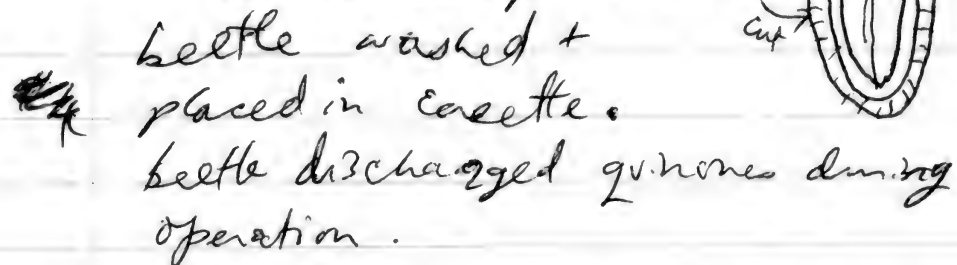 beetle washed +
placed in
beetle discharged quinones during
operation.
cut